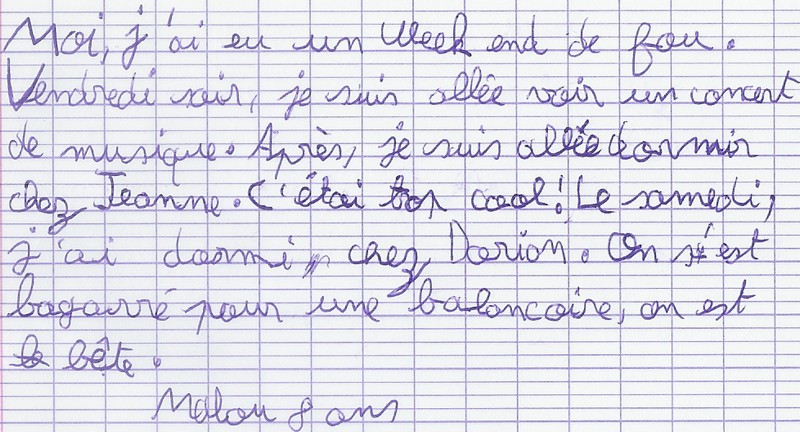 Moi, j'ai eu un Week end de fou.
Vendredi soir, je suis allée voir un concert
de musique. Après, je suis allée dormir
chez Jeanne. C'étai trop cool! Le samedi,
j'ai dormi chez Dorion. On s'est
bagarré pour une balancoire, on est
bête.
Malou 8 ans